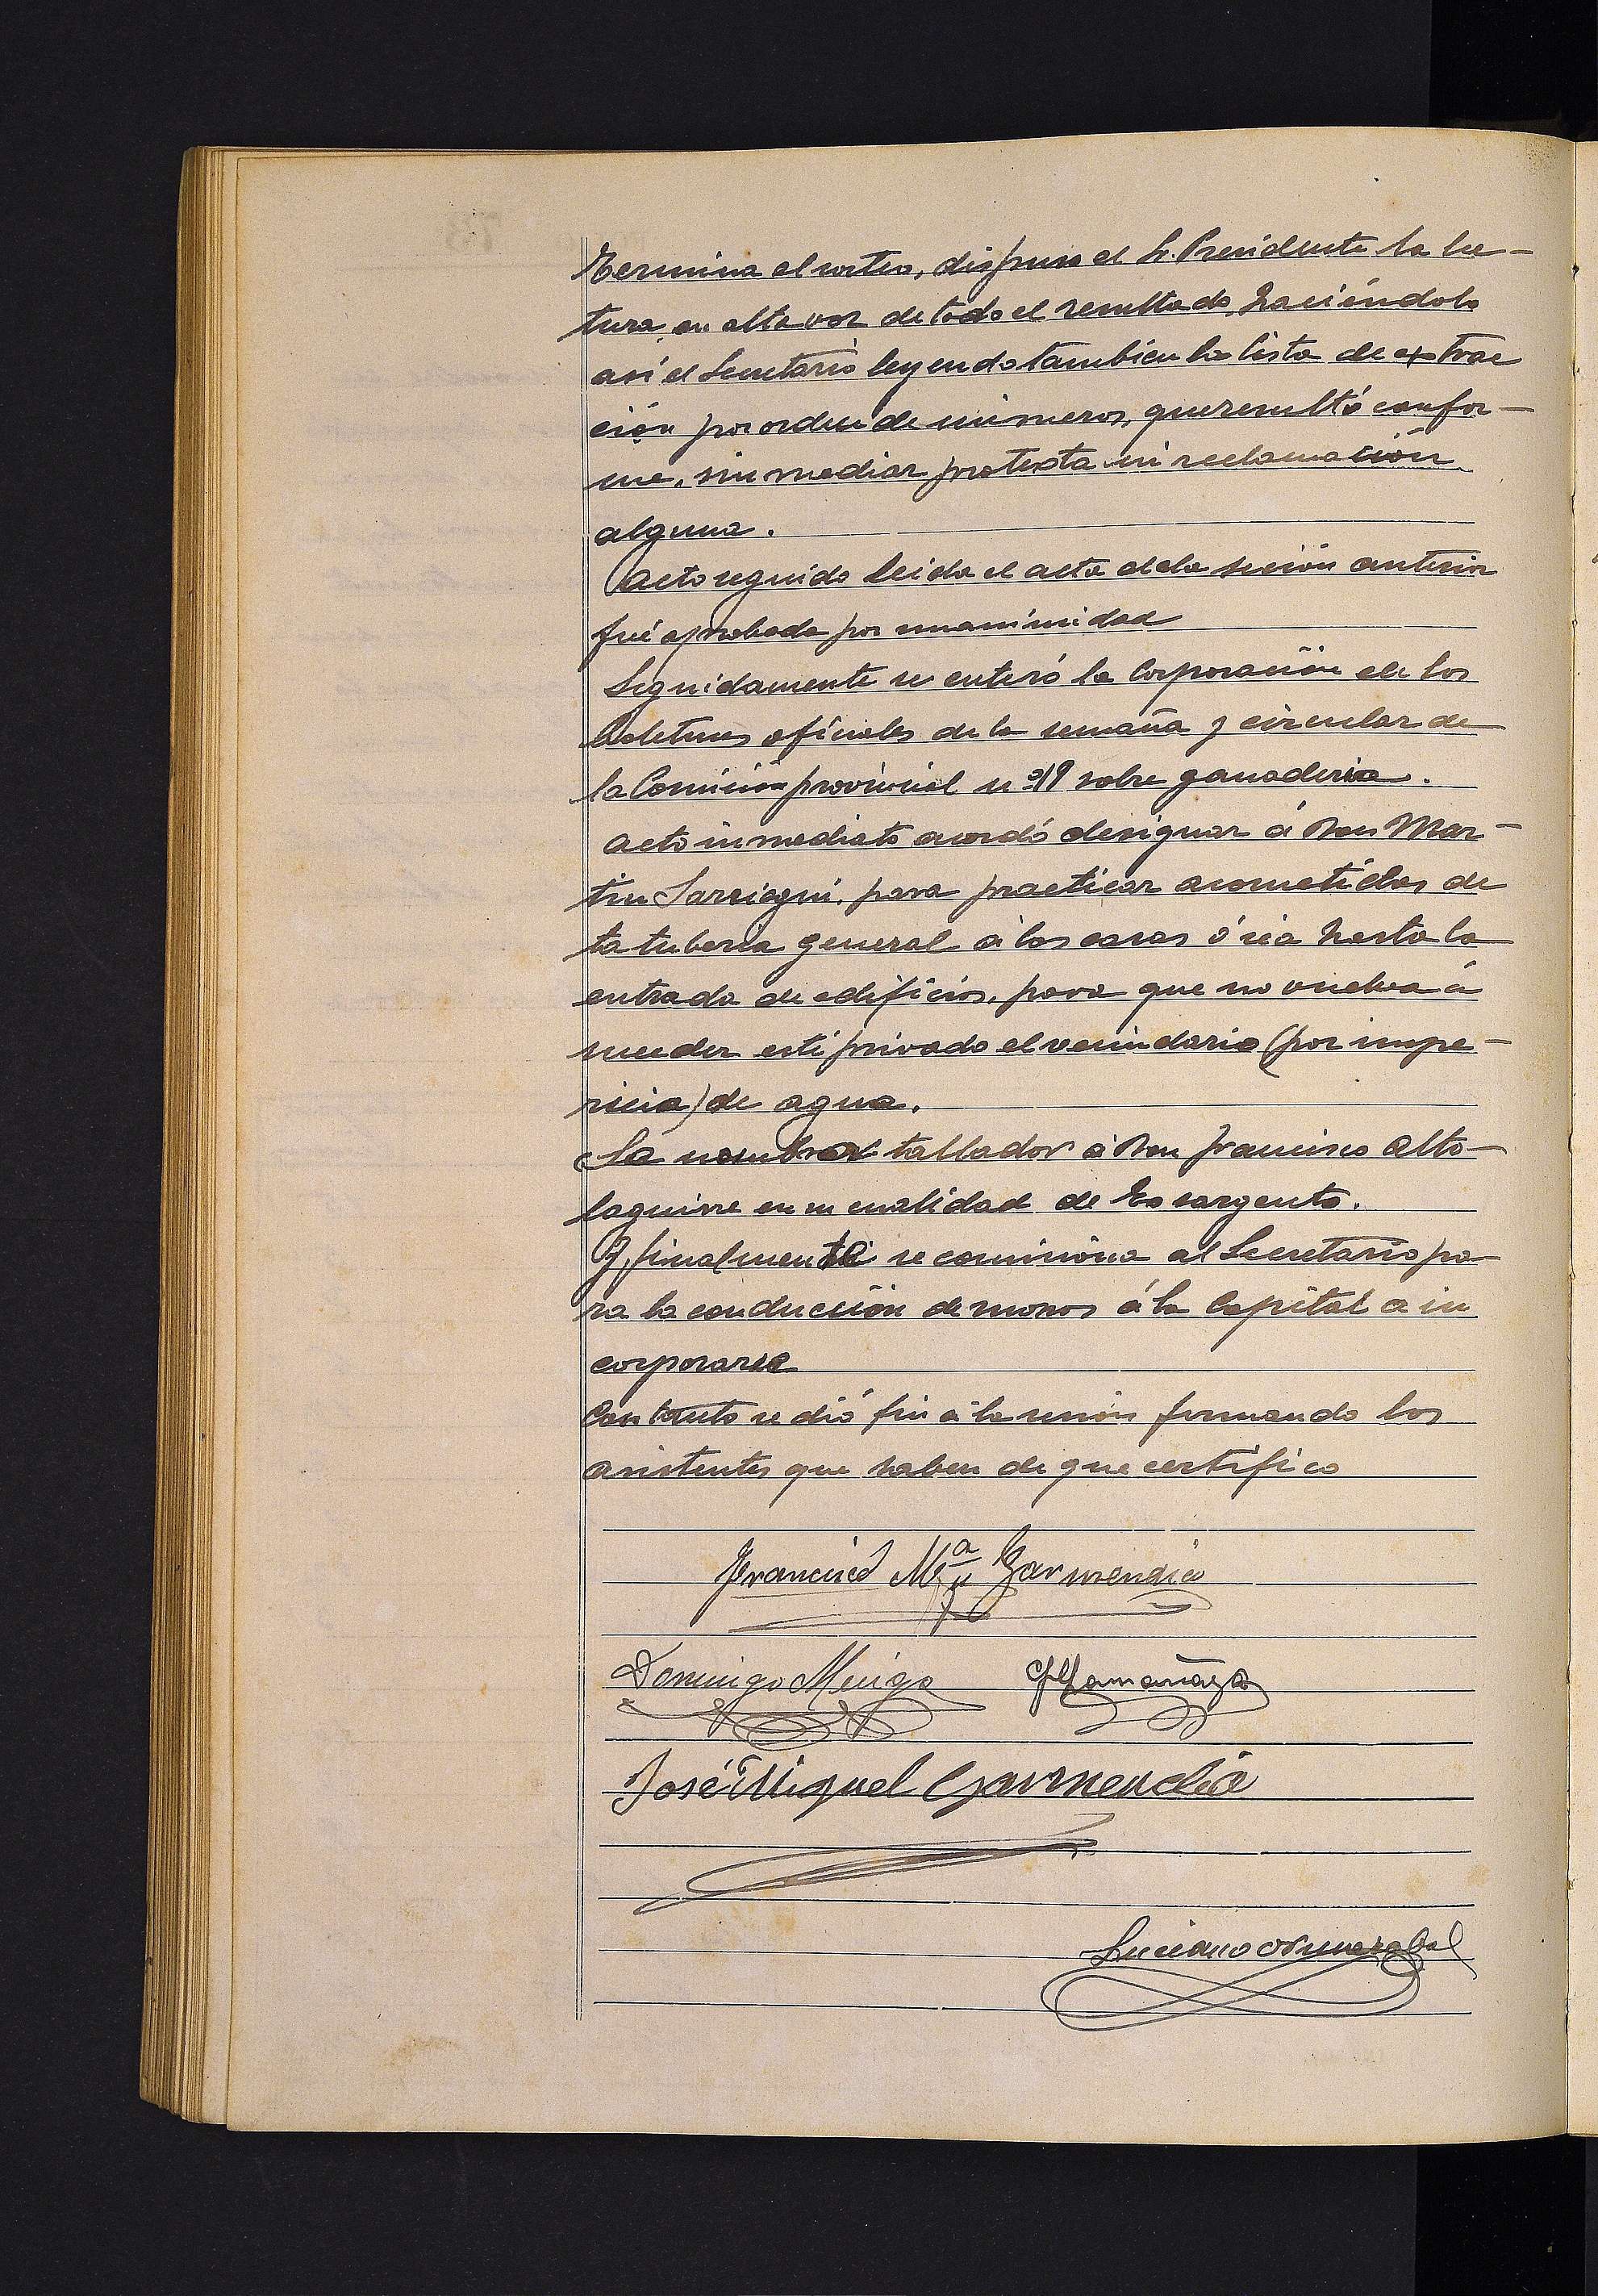 Termina el sorteo, dispuso el Sr. Presidente la lec-
tura, en alta voz de todo el resultado, haciéndolo
así el Secretario leyendo tambien la lista de extrac
ción por orden de números, que resultó confor-
me, sin mediar protexta ni reclamación
alguna.
Acto seguido leida el acta de la sesión anterior
fué aprobada por unanimidad
Seguidamente se enteró la Corporación de los
boletines oficiales de la semana y circular de
la Comisión provincial nº 19 sobre ganaderia.
Acto inmediato acordó designar á Don Mar-
tin Sarriegui, para practicar acometidas de
la tuberia general á las casas ó sea hasta la
entrada de edificios, para que no vuelva á
suceder esté privado el vecindario (por impe-
ricia) de agua.
Se nombra tallador á Don Francisco Alto-
laguirre en su cualidad de Ex sargento.
Y finalmente se comisiona al Secretario pa-
ra la conducción de mozos á la Capital a in
corporarse
Con tanto se dió fin á la sesión firmando los
asistentes que saben de que certifico
Francisco Mª Garmendia
Domingo Mugica
José Miguel Garmendia
Luciano